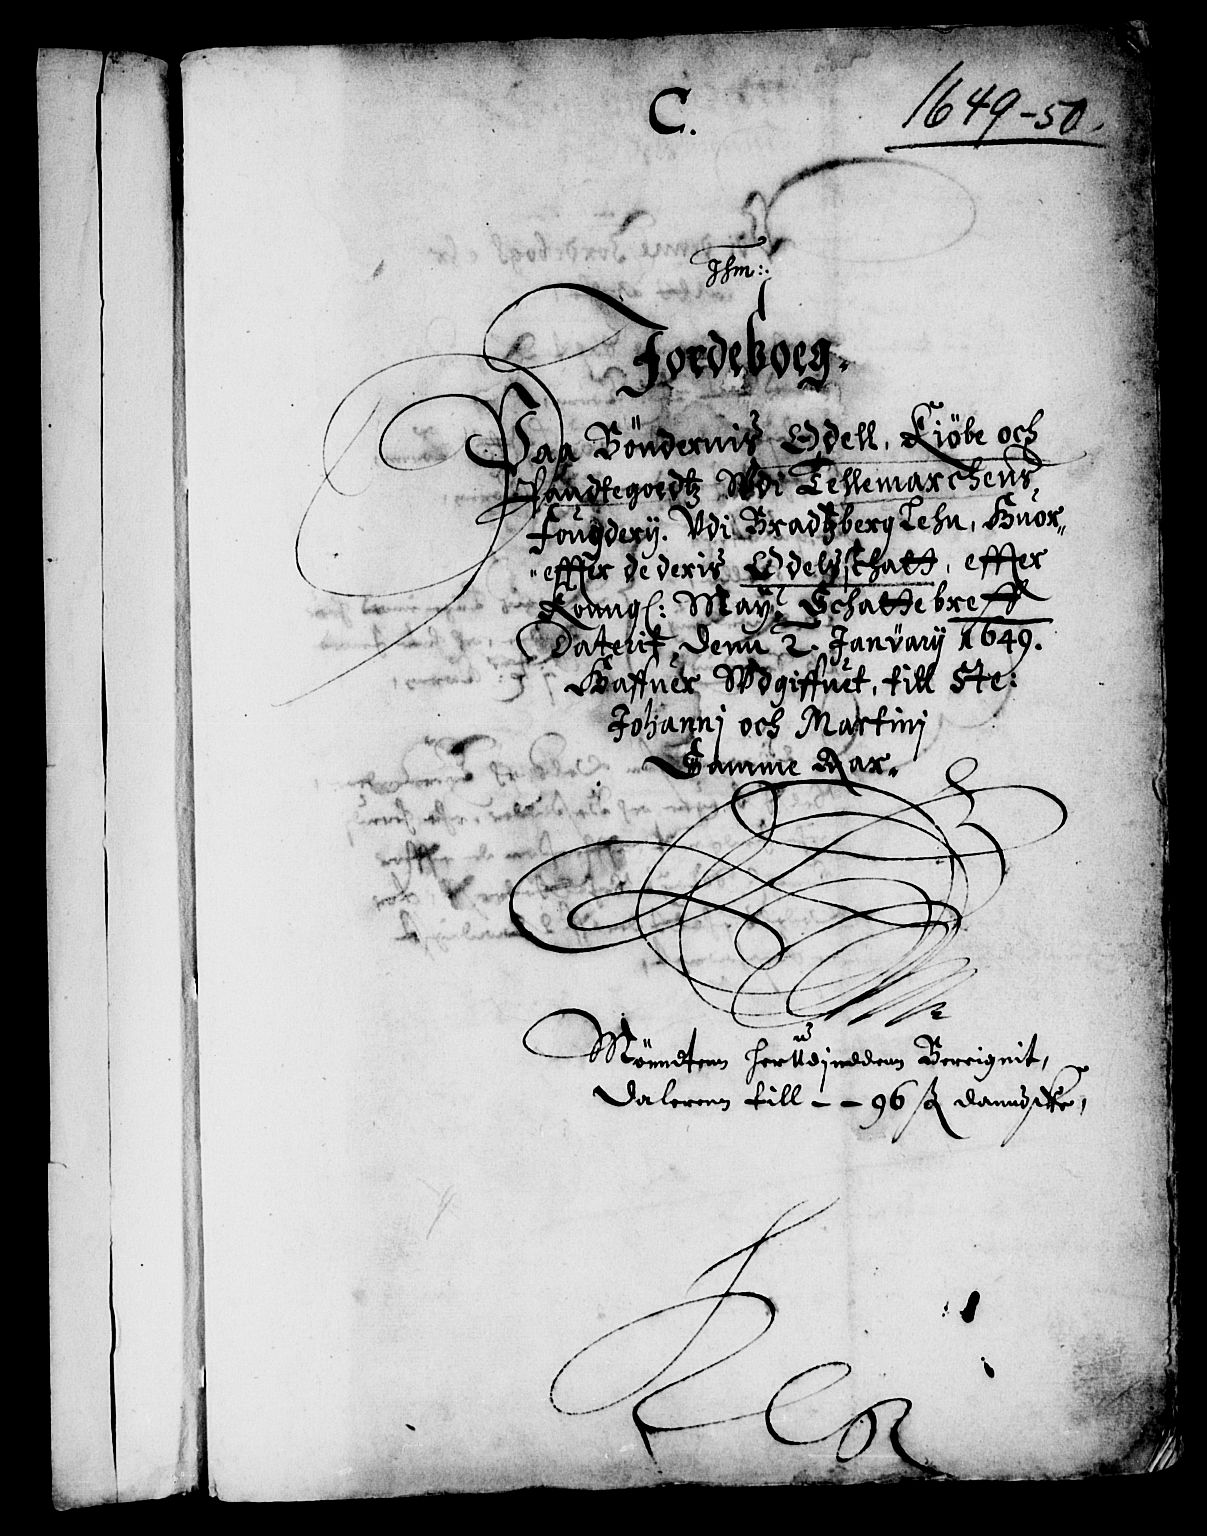 C.
1649-50.
Ihm:
Jordeboeg.
Paa Böndernis Odell, Kiöbe och
Pandtegoedtz Udi Tellemarchens
Fougderij. Udi Bradtzberg Lehn, Huor-
-effter de deris Odelsschatt, effter
Konngl: May: Schattebreff
Daterit denn 2. Januarij 1649.
Haffuer Udgiffuet, till Ste:
Johannj och Martinj
Samme Aar.
Mönndtenn herudjnddenn Bereignit,
Dalerenn till - - 96 ß dannske,